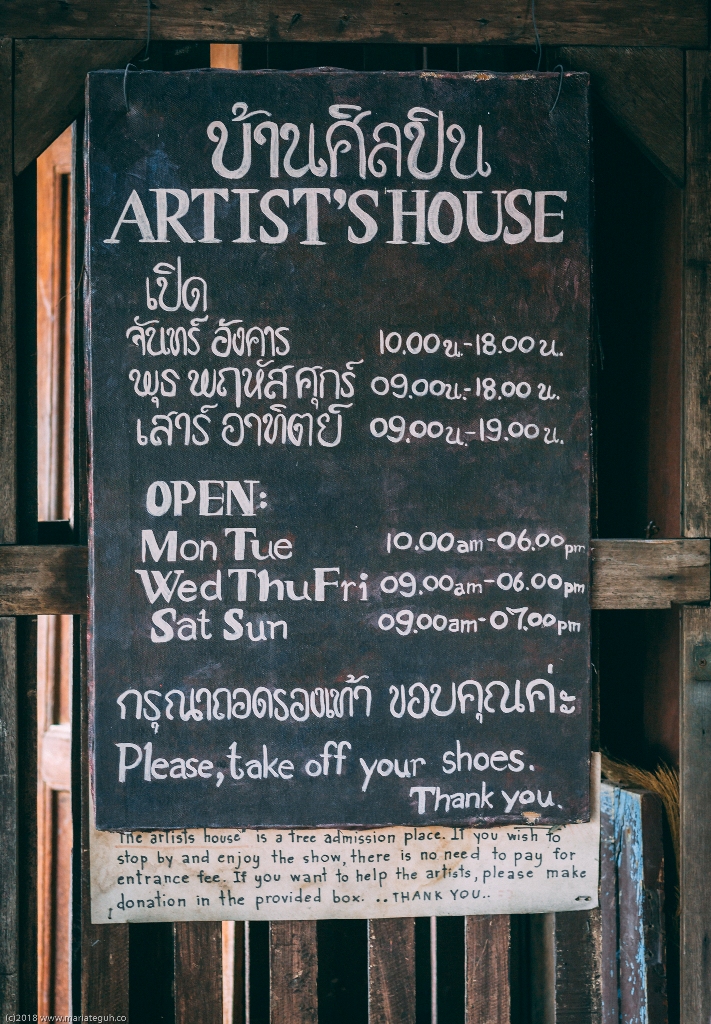 บ้านศิลปิน
ARTIST'S HOUSE
เปิด
จันทร์ อังคาร 10.00 น.-18.00 น.
พุธ พฤหัส ศุกร์ 09.00 น.-18.00 น.
เสาร์ อาทิตย์ 09.00 น.-19.00 น.
OPEN:
Mon Tue 10.00 am-06.00 pm
Wed Thu Fri 09.00 am-06.00 pm
Sat Sun 09.00 am-07.00 pm
กรุณาถอดรองเท้า ขอบคุณค่ะ
Please, take off your shoes.
Thank you.
The artists house" is a free admission place. If you wish to
stop by and enjoy the show, there is no need to pay for
entrance fee. If you want to help the artists, please make
donation in the provided box. ..THANK YOU..
(c)2018 www.mariateguh.co